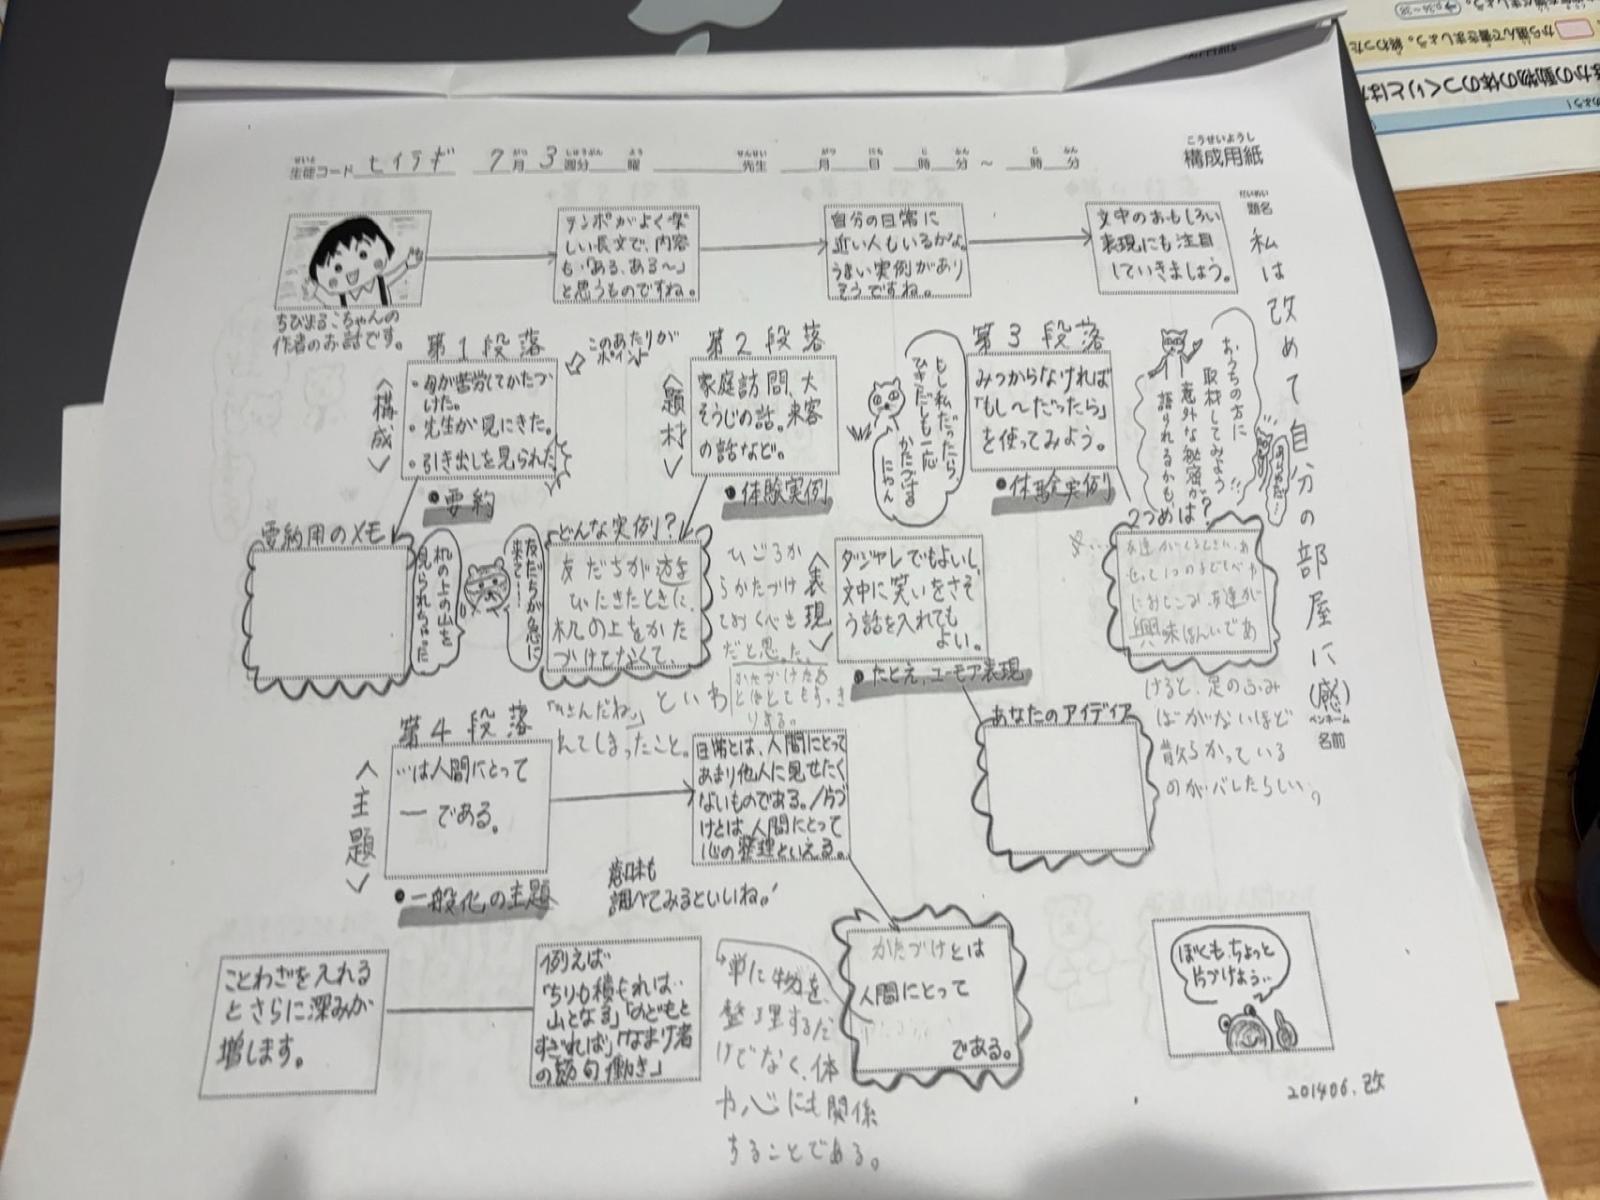 こうせいようし
構成用紙
生徒コード ヒイラギ 7月3週分 曜 先生 月 日 時 分 ～ 時 分
だいめい
題名
私は改めて自分の部屋に(感)
ペンネーム
名前
ちびまるこちゃんの
作者のお話です。
テンポがよく楽
しい長文で、内容
も「ある、ある～」
と思うものですね。
自分の日常に
近い人もいるかな。
うまい実例があり
そうですね。
文中のおもしろい
表現にも注目
していきましょう。
第1段落
このあたりが
ポイント
<構成>
・母が苦労してかたづ
けた。
・先生が見にきた。
・引き出しを見られた
●要約
要約用のメモ
机の上の山を
見られちゃった
第2段落
<題材>
家庭訪問、大
そうじの話。来客
の話など。
●体験実例
どんな実例?
友だちが急に
来て!
友だちが遊
びたきたときに、
机の上をかた
づけてなくて、
といわ
れてしまったこと。
ひごろか
らかたづけ
ておくべき
だと思った。
もし私だったら、
ひきだしも一応
かたづける
にゃん
第3段落
みつからなければ
「もし～だったら」
を使ってみよう。
●体験実例
おうちの方に
取材してみよう!!
意外な秘密が
語られるかも?
2つめは?
興味ほんいであ
けると、足のふみ
ばがないほど
散らかっている
のがバレたらしい。
<表現>
ダジャレでもよいし、
文中に笑いをさそ
う話を入れても
よい。
●たとえ、ユーモア表現
あなたのアイディア
第4段落
<主題>
…は人間にとって
―である。
●一般化の主題
日常とは、人間にとって
あまり他人に見せたく
ないものである。/片づ
けとは、人間にとって
心の整理といえる。
意味も
調べてみるといいね。!
かたづけとは
人間にとって
である。
単に物を、
整理するだ
けでなく、体
や心にも関係
することである。
ことわざを入れる
とさらに深みが
増します。
例えば
「ちりも積もれば‥
山となる」「のどもと
すぎれば」「なまけ者
の節句働き」
ぼくも、ちょっと
片づけよう‥
201406.改